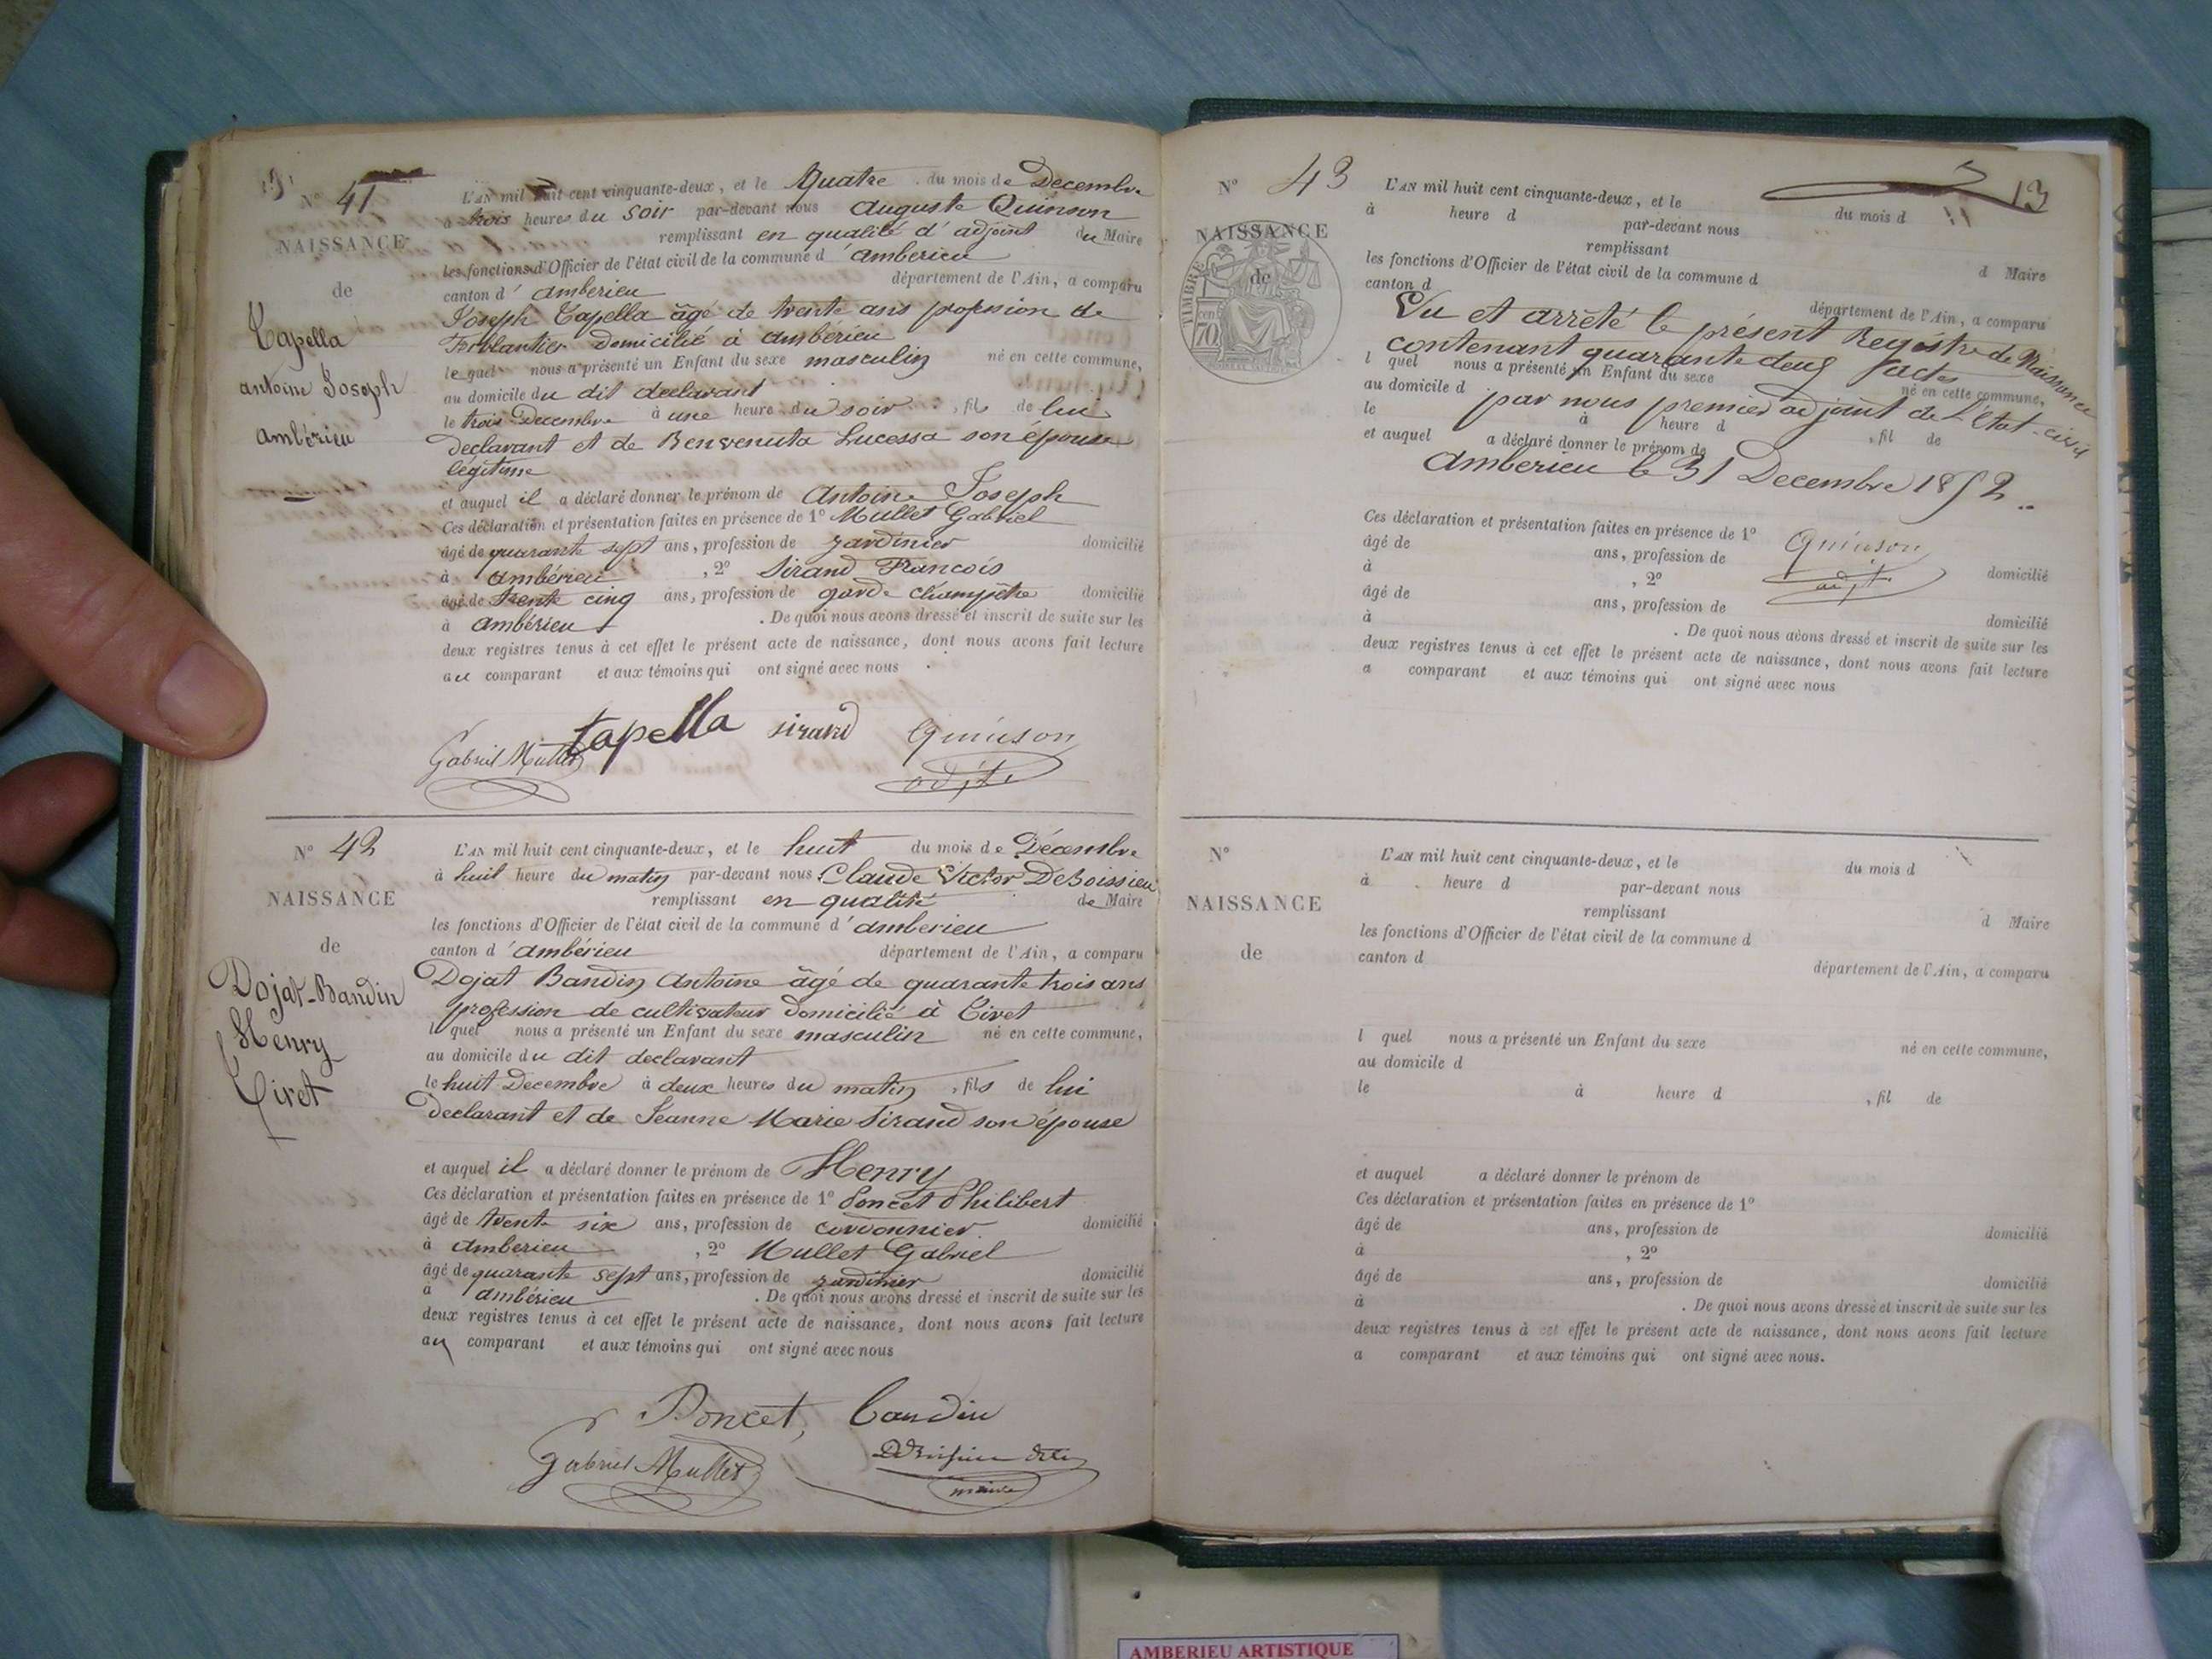 N° 41
NAISSANCE
de
Tapella
antoine Joseph
ambérieu
L'AN mil huit cent cinquante-deux, et le Quatre du mois de Decembre
à trois heures du soir par-devant nous auguste Quinson
remplissant en qualité d'adjoint du Maire
les fonctions d'Officier de l'état civil de la commune d'amberieu
canton d'amberieu département de l'Ain, a comparu
Joseph Tapella âgé de trente ans profession de
ferblantier domicilié à ambérieu
lequel nous a présenté un Enfant du sexe masculin né en cette commune,
au domicile du dit declarant
le trois Decembre à une heure du soir, fils de lui
declarant et de Benvenuta Lucessa son épouse
légitime
et auquel il a déclaré donner le prénom de Antoine Joseph
Ces déclaration et présentation faites en présence de 1° Mullet Gabriel
âgé de quarante sept ans, profession de jardinier domicilié
à ambérieu, 2° Sirand François
âgé de trente cinq ans, profession de garde champêtre domicilié
à ambérieu. De quoi nous avons dressé et inscrit de suite sur les
deux registres tenus à cet effet le présent acte de naissance, dont nous avons fait lecture
au comparant et aux témoins qui ont signé avec nous.
Gabriel Mullet tapella sirand Quinson
adjt
N° 42
NAISSANCE
de
Dojat-Bandin
Henry
Tiret
L'AN mil huit cent cinquante-deux, et le huit du mois de Décembre
à huit heure du matin par-devant nous Claude Victor DeBoissieu
remplissant en qualité de Maire
les fonctions d'Officier de l'état civil de la commune d'amberieu
canton d'ambérieu département de l'Ain, a comparu
Dojat Bandin Antoine âgé de quarante trois ans
profession de cultivateur domicilié à Tiret
l quel nous a présenté un Enfant du sexe masculin né en cette commune,
au domicile du dit declarant
le huit Decembre à deux heures du matin, fils de lui
declarant et de Jeanne Marie Sirand son épouse
et auquel il a déclaré donner le prénom de Henry
Ces déclaration et présentation faites en présence de 1° Poncet Philibert
âgé de trente six ans, profession de cordonnier domicilié
à amberieu, 2° Mullet Gabriel
âgé de quarante sept ans, profession de jardinier domicilié
à ambérieu. De quoi nous avons dressé et inscrit de suite sur les
deux registres tenus à cet effet le présent acte de naissance, dont nous avons fait lecture
au comparant et aux témoins qui ont signé avec nous
Poncet, Bandin
Gabriel Mullet
maire
13
N° 43
NAISSANCE
de
TIMBRE
70 cen
L'AN mil huit cent cinquante-deux, et le du mois d
à heure d par-devant nous
remplissant d Maire
les fonctions d'Officier de l'état civil de la commune d
canton d département de l'Ain, a comparu
Vu et arrêté le présent Registre de Naissance
contenant quarante deux factes
l quel nous a présenté un Enfant du sexe né en cette commune,
au domicile d
par nous premier adjoint de l'Etat-civil
le à heure d, fil de
et auquel a déclaré donner le prénom de
Amberieu le 31 Decembre 1852..
Ces déclaration et présentation faites en présence de 1° Quinson
âgé de ans, profession de domicilié
adjt
à, 2°
âgé de ans, profession de domicilié
à. De quoi nous avons dressé et inscrit de suite sur les
deux registres tenus à cet effet le présent acte de naissance, dont nous avons fait lecture
a comparant et aux témoins qui ont signé avec nous
N°
NAISSANCE
de
L'AN mil huit cent cinquante-deux, et le du mois d
à heure d par-devant nous
remplissant d Maire
les fonctions d'Officier de l'état civil de la commune d
canton d département de l'Ain, a comparu
l quel nous a présenté un Enfant du sexe né en cette commune,
au domicile d
le à heure d, fil de
et auquel a déclaré donner le prénom de
Ces déclaration et présentation faites en présence de 1°
âgé de ans, profession de domicilié
à, 2°
âgé de ans, profession de domicilié
à. De quoi nous avons dressé et inscrit de suite sur les
deux registres tenus à cet effet le présent acte de naissance, dont nous avons fait lecture
a comparant et aux témoins qui ont signé avec nous.
AMBERIEU ARTISTIQUE